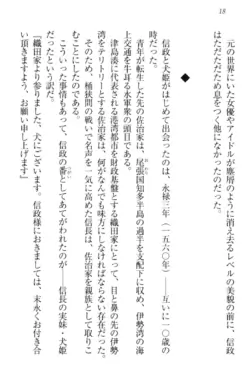 18
元の世界にいた女優やアイドルが塵屑のように消え去るレベルの美貌の前に、信政
はただただため息をつく他になかったのだった。
◆
信政と犬姫がはじめて出会ったのは、永禄三年（一五六〇年）――互いに一〇歳の
時だった。
青年が転生した先の佐治家は、尾張国知多半島の過半を支配下に収め、伊勢湾の海
上交通を牛耳る水軍衆の頭目である。
津島湊に代表される港湾都市を財政基盤とする織田家にとって、目と鼻の先の伊勢
湾をテリトリーとする佐治家は、何がなんでも味方にしなければならない存在だった。
そのため、桶狭間の戦いで名声を一気に高めた信長は、佐治家を親族として取りこ
むことにしたのである。
こういった事情もあって、信政の番としてあてがわれたのが――信長の実妹・犬姫
だったという訳だ。
『織田家より参りました、犬にございます。信政様におきましては、末永くお付き合
い頂きますよう、お願い申し上げます』